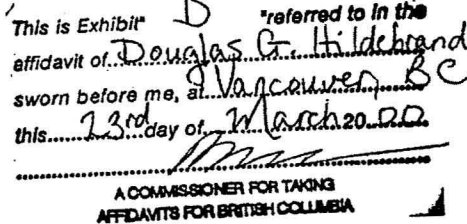 This is Exhibit" D "referred to in the
affidavit of Douglas G. Hildebrand
sworn before me, at Vancouver, BC
this 23rd day of March 2000
A COMMISSIONER FOR TAKING
AFFIDAVITS FOR BRITISH COLUMBIA